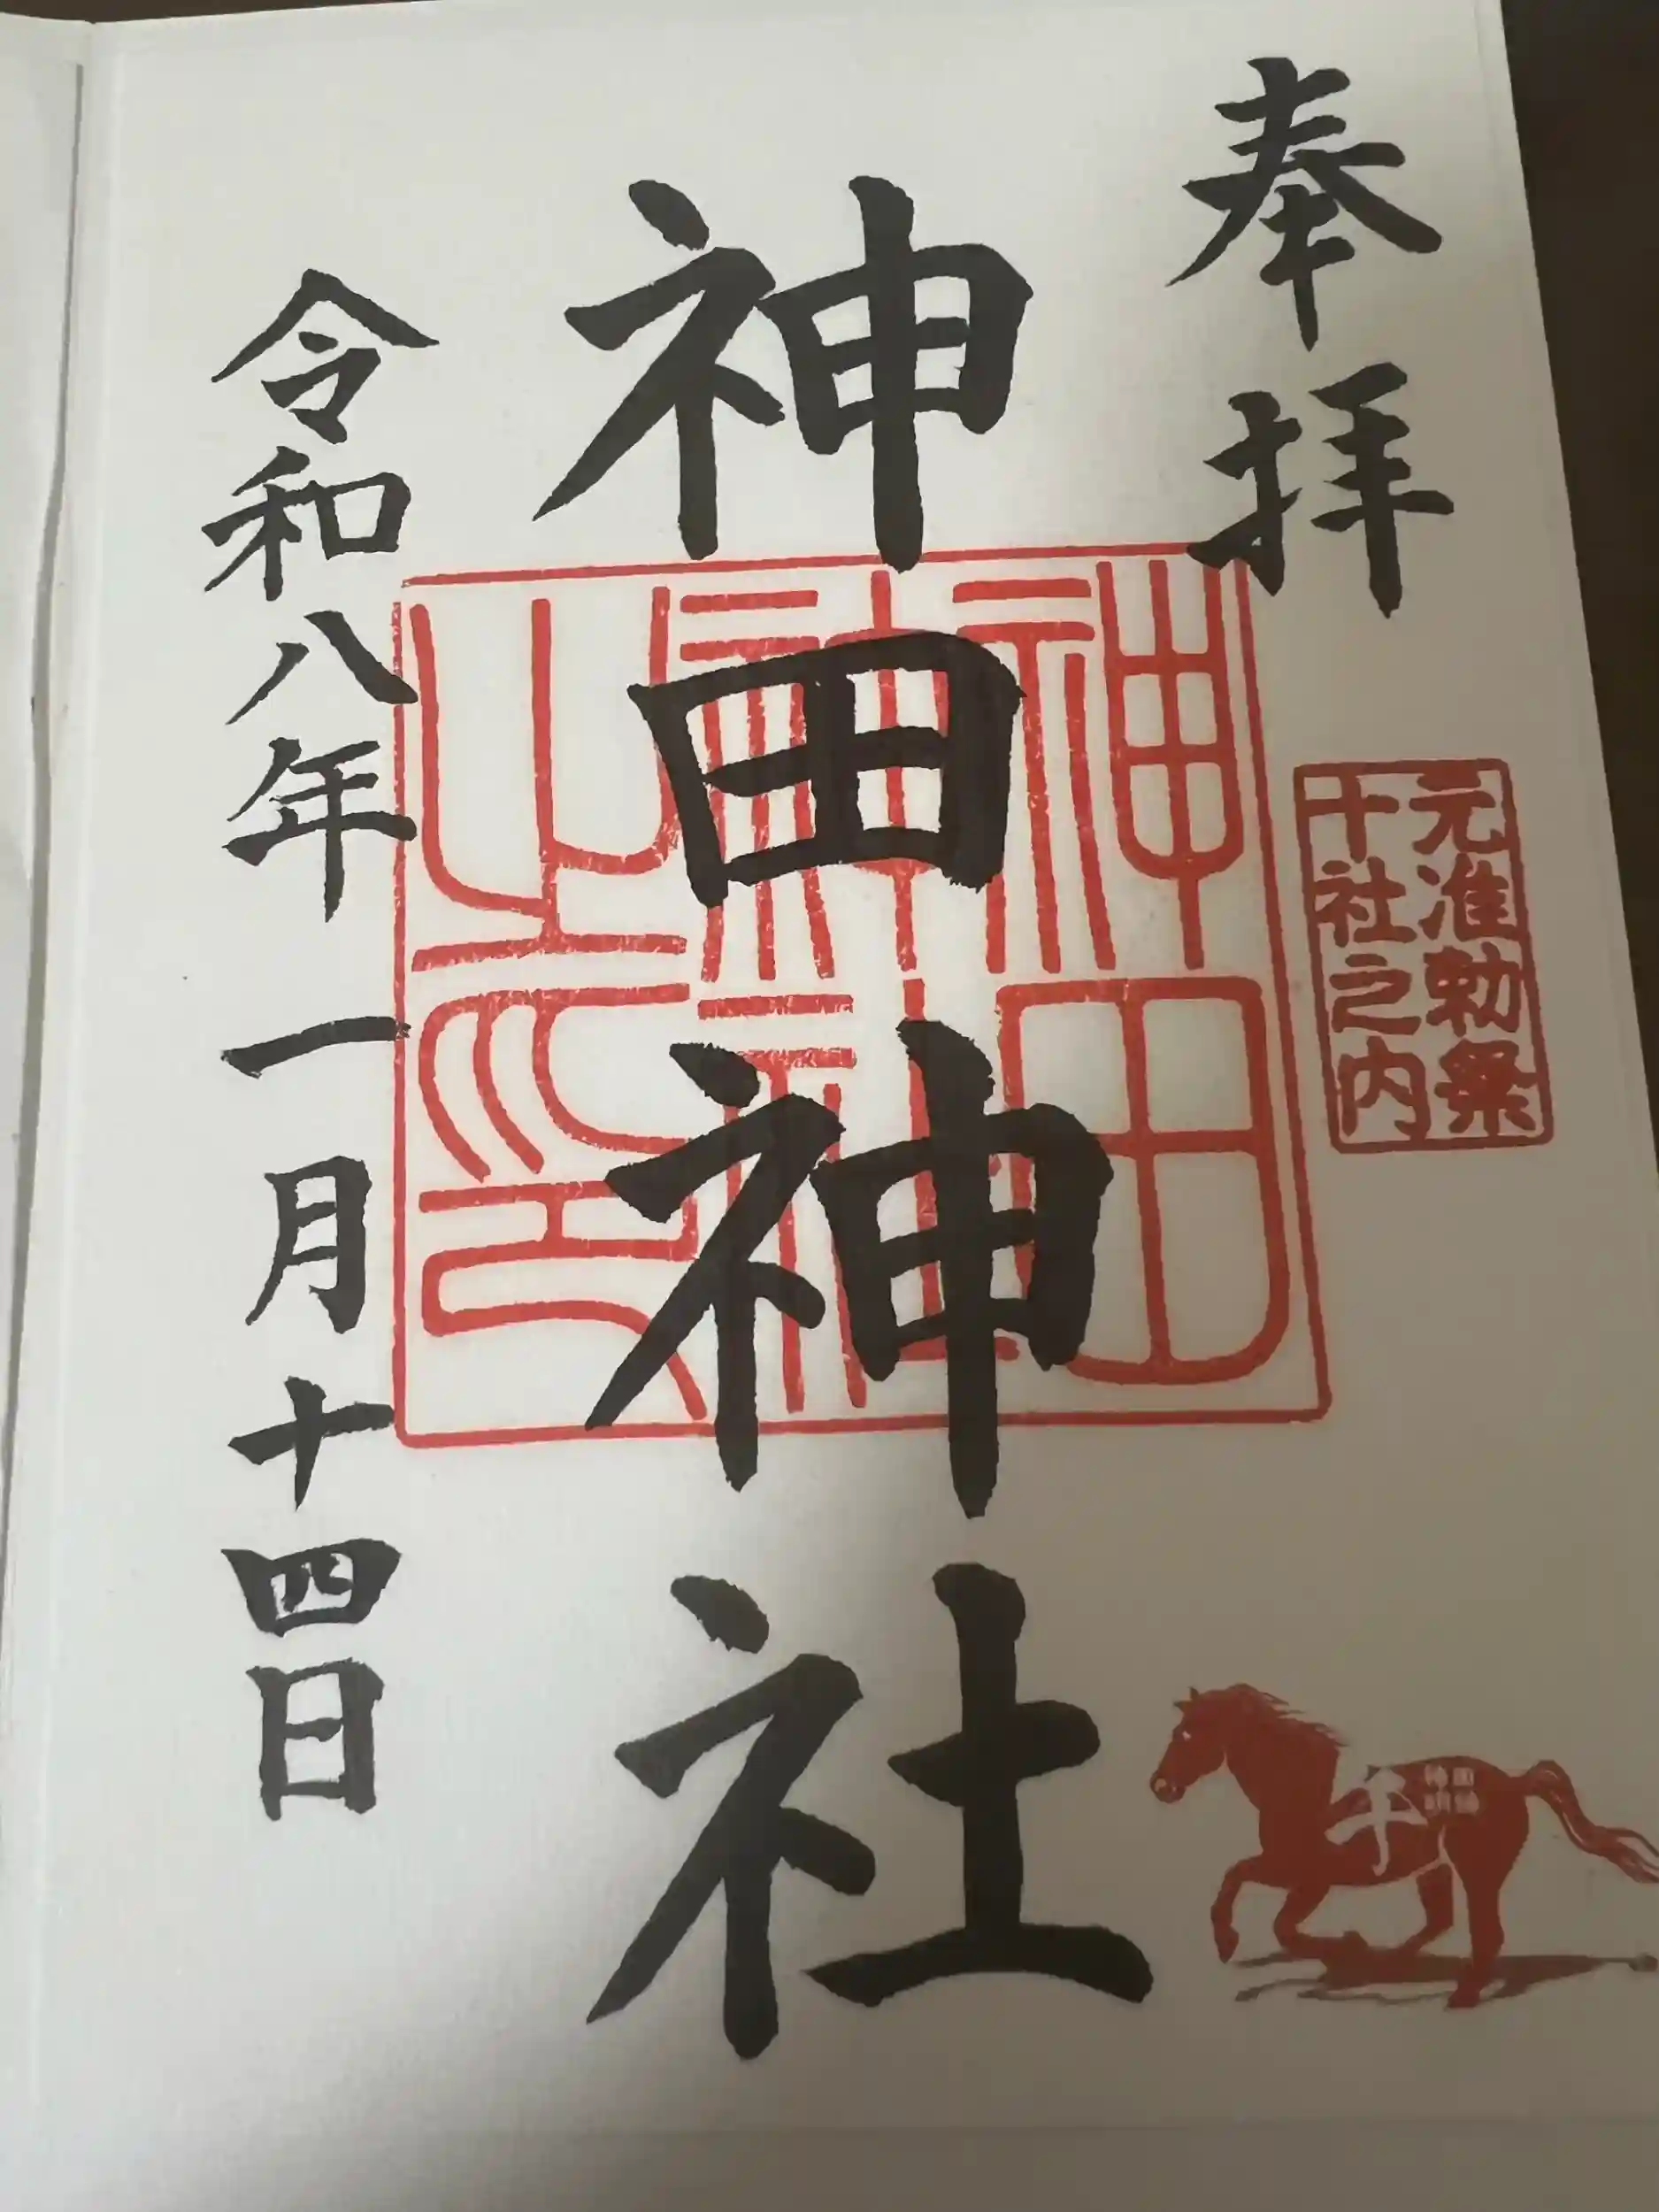 奉拝
元准勅祭
十社之内
神田神社
神田
神社
之印
令和八年一月十四日
午
神田
明神